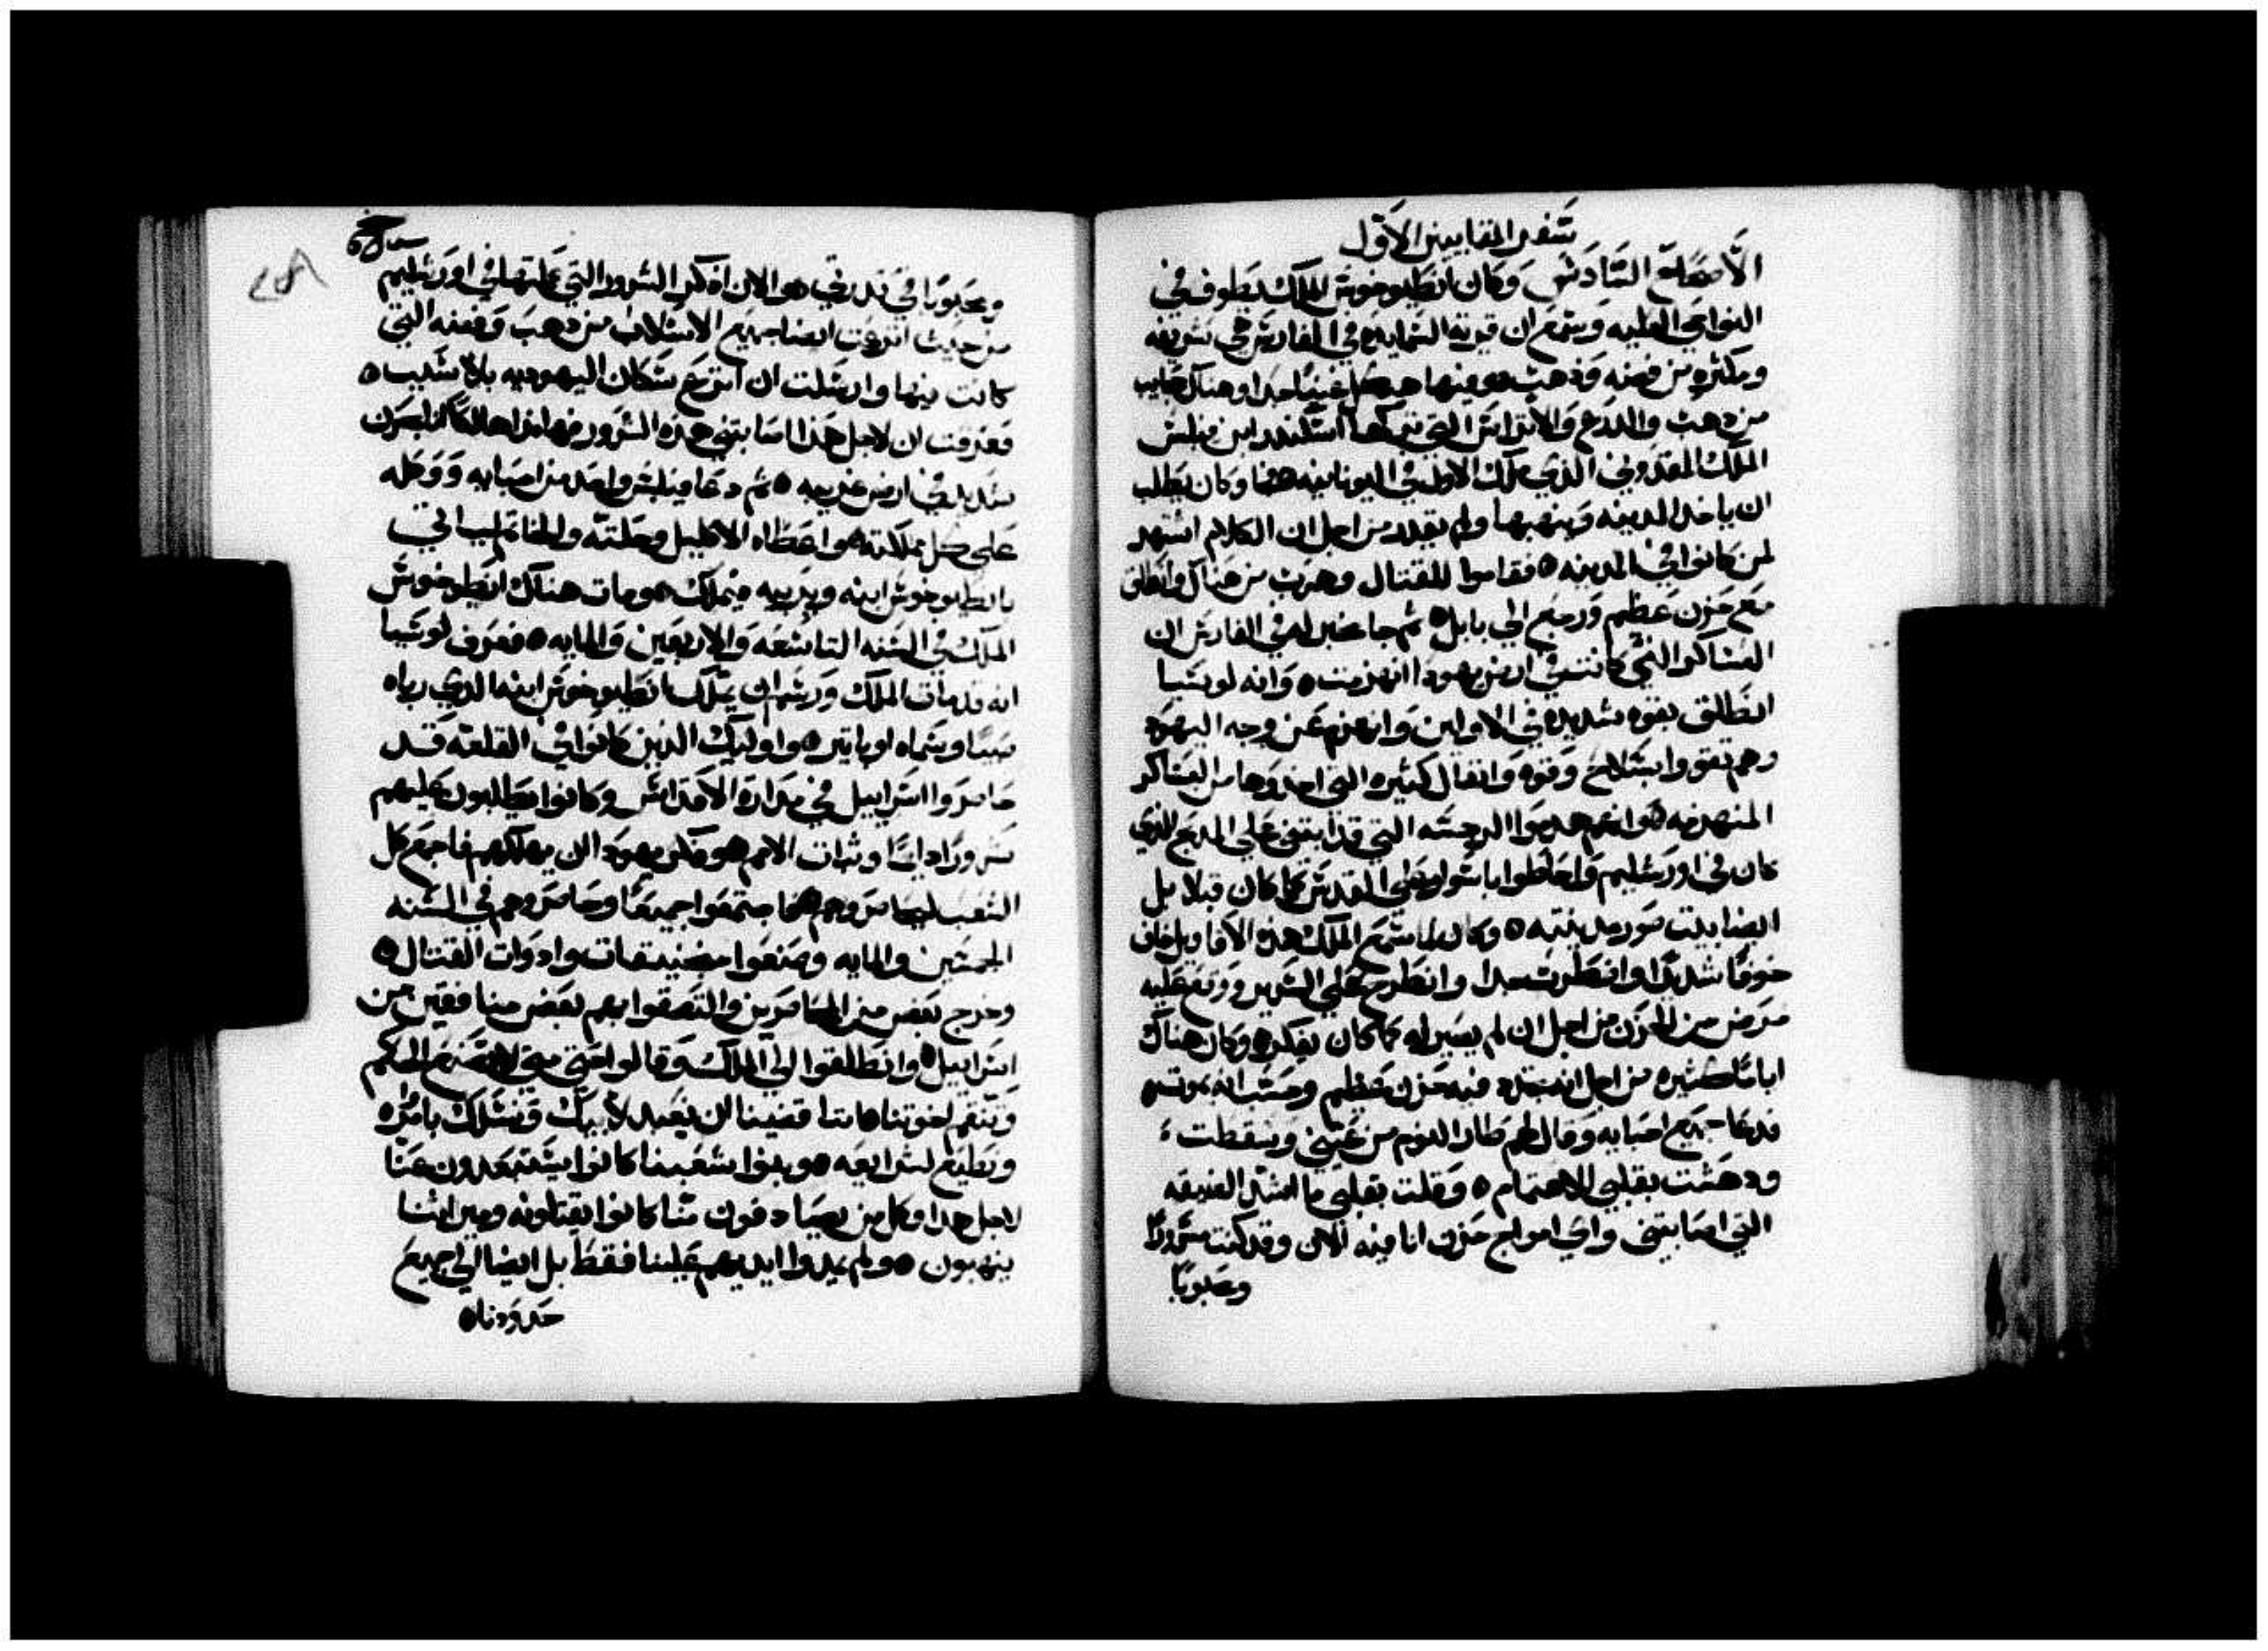 سفر المقابيين الاول
الاصحاح السادس وكان انطيوخوش الملك يطوف في
النواحي العليه وسمع ان قريه اليمايده في الفارس هي شريفه
ومكثره من فضه وذهب وفيها هيكل غنيا جدا وهناك حجايب
من دهب والدرع والاتراس التي تركها اسكندر ابن فيلبس
الملك المقدوني الذي ملك الاول في اليونانيه هما وكان يطلب
ان ياخد المدينه وينهبها ولم يقدر من اجل ان الكلام اشتهر
لمن كانوا في المدينه ه فقاموا للقتال وهرب من هناك وانطلق
مع حزن عظيم ورجع الي بابل ه ثم جا مخبر له في الفارس ان
العساكر التي كانت في ارض يهودا انهزمت ه وانه لوسيا
انطلق بقوه شديده في الاولين وانهزم عن وجه اليهود
وهم تقووا بسلاح وقوه وانفال كثيره التي اخدوها من العساكر
المنهزمه ه وانهم هدموا الرجسه التي قد ابتني علي المدبح الذي
كان في اورشليم واحاطوا باسوار علي المقدس كما كان قبلا بل
ايضا بيت صور مدينته ه وكان لما سمع الملك هذه الاقاويل خاف
خوفا شديدا واضطرب جدا وانطرح علي السرير ووقع عليه
مرض من الحزن من اجل ان لم يصير له كما كان يفكر ه وكان هناك
اياما كثيره من اجل انه تجدد فيه حزن عظيم وحسب انه يموت ه
فدعا جميع احبايه وقال لهم طار النوم من عيني وسقطت
ودهشت بقلبي للاهتمام ه وقلت بقلبي ما اشد الضيقه
التي اصابتني واي امواج حزن انا فيه الان وقد كنت مسرورا
ومحبوبا
ومحبوبا في قدرتي ه والان اذكر الشرور التي عملتها في اورشليم
من حيث انتزعت ايضا جميع الاسلاب من دهب وفضه التي
كانت فيها وارسلت ان انتزع سكان اليهوديه بلا سبب ه
فعرفت ان لاجل هذا اصابتني هذه الشرور فها انذا هالكا بحزن
شديد في ارض غريبه ه ثم دعا فيلبس واحد من احبايه ووكله
علي كل مملكته ه واعطاه الاكليل وحلته والخاتم ليأتي
بانطيوخوش ابنه ويربيه فيملك ه ومات هناك انطيوخوش
الملك في السنه التاسعه والاربعين والمايه ه فعرف لوسيا
انه قد مات الملك ورسم ان يملك انطيوخوش ابنه الدي رباه
صبيا وسماه اوباتير ه واوليك الدين كانوا في القلعه قد
حاصروا اسراييل في مدارة الاقداس وكانوا يطلبون عليهم
شرورا دايما وثبات الامم ه وفكر يهودا ان يهلكهم فاجمع كل
الشعب ليحاصروهم ه فاجتمعوا جميعا وحاصروهم في السنه
الخمسين والمايه وصنعوا منجنيقات وادوات القتال ه
وخرج بعض من المحاصرين والتصقوا بهم بعض منافقين من
اسراييل ه وانطلقوا الي الملك وقالوا حتي متي لا تصنع الحكم
وتنقم لخوتنا ه اننا قضينا ان نعبد لابيك ونسلك بامره
ونطيع لشرايعه ه وبنوا شعبنا كانوا يستبعدون عنا
لاجل هدا وكل من يصادفون منا كانوا يقتلونه وميراثنا
ينهبون ه ولم يمدوا ايديهم علينا فقط بل ايضا الي جميع
حدودنا ه